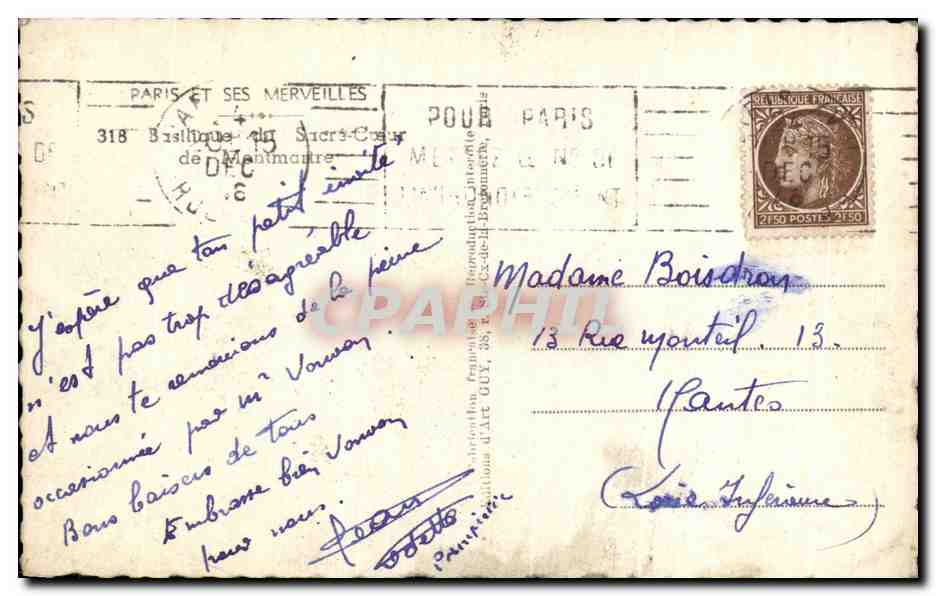 PARIS ET SES MERVEILLES
318 Basilique du Sacré-Cœur
de Montmartre
15
DEC
POUR PARIS
REPUBLIQUE FRANÇAISE
2F50 POSTES 2F50
CPAPHIL
J'espère que ton petit invité
n'est pas trop désagréable
et nous te remercions de la peine
occasionnée par mr
Bons baisers de tous
Embrasse bien
pour nous.
Odette
Fabrication française Reproduction interdite
Editions d'Art GUY, 38, r. Ste-Cx-de-la-Bretonnerie, Paris
Madame Boisdron
13 Rue Monteil. 13.
Nantes
(Loire Inférieure)